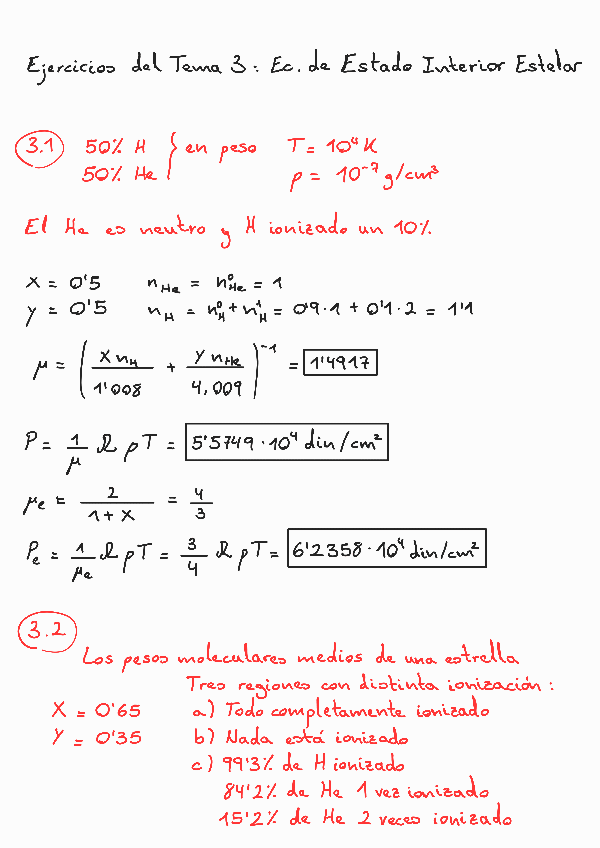 Ejercicios del Tema 3: Ec. de Estado Interior Estelar
3.1 50% H } en peso T = 10⁴ K
50% He ρ = 10⁻⁷ g/cm³
El He es neutro y H ionizado un 10%.
X = 0'5 n_He = n⁰_He = 1
Y = 0'5 n_H = n⁰_H + n¹_H = 0'9·1 + 0'1·2 = 1'1
μ = (X n_H / 1'008 + Y n_He / 4,009)⁻¹ = 1'4917
P = 1/μ R ρ T = 5'5749·10⁴ din/cm²
μe = 2 / (1+X) = 4/3
Pe = 1/μe R ρ T = 3/4 R ρ T = 6'2358·10⁴ din/cm²
3.2
Los pesos moleculares medios de una estrella
Tres regiones con distinta ionización:
X = 0'65 a) Todo completamente ionizado
Y = 0'35 b) Nada está ionizado
c) 99'3% de H ionizado
84'2% de He 1 vez ionizado
15'2% de He 2 veces ionizado